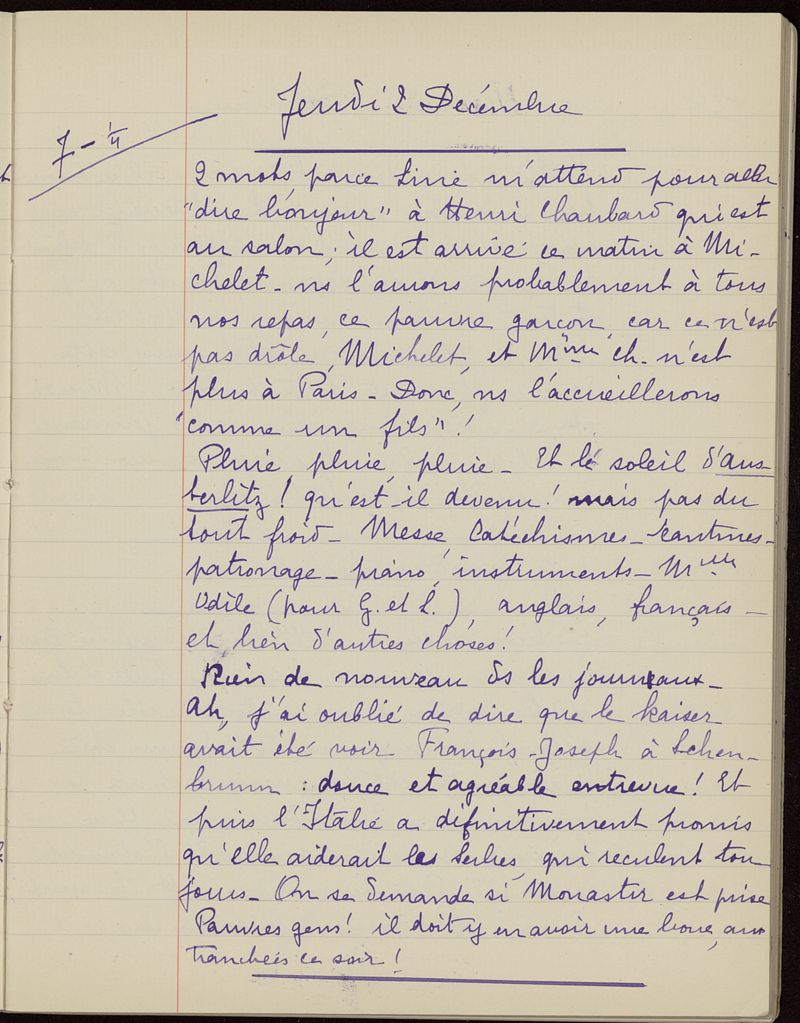 Jeudi 2 Décembre
7 - 1/4
2 mots, parce Linie m'attend pour aller
"dire bonjour" à Henri Chaubard qui est
au salon ; il est arrivé ce matin à Mi-
chelet - ns l'aurons probablement à tous
nos repas, ce pauvre garçon, car ce n'est
pas drôle, Michelet, et Mme Ch. n'est
plus à Paris - Donc, ns l'accueillerons
"comme un fils" !
Pluie, pluie, pluie - Et le soleil d'aus-
terlitz ! qu'est-il devenu ! mais pas du
tout froid - Messe Catéchismes -
patronage - piano, instruments - Melle
Odile (pour G. et L.), anglais, français -
et bien d'autres choses !
Rien de nouveau ds les journaux -
Ah, j'ai oublié de dire que le kaiser
avait été voir François-Joseph à Schen-
brunn : douce et agréable entrevue ! Et
puis l'Italie a définitivement promis
qu'elle aiderait les Serbes, qui reculent tou-
jours - On se demande si Monastir est prise
Pauvres gens ! il doit y en avoir une boue, aux
tranchées ce soir !